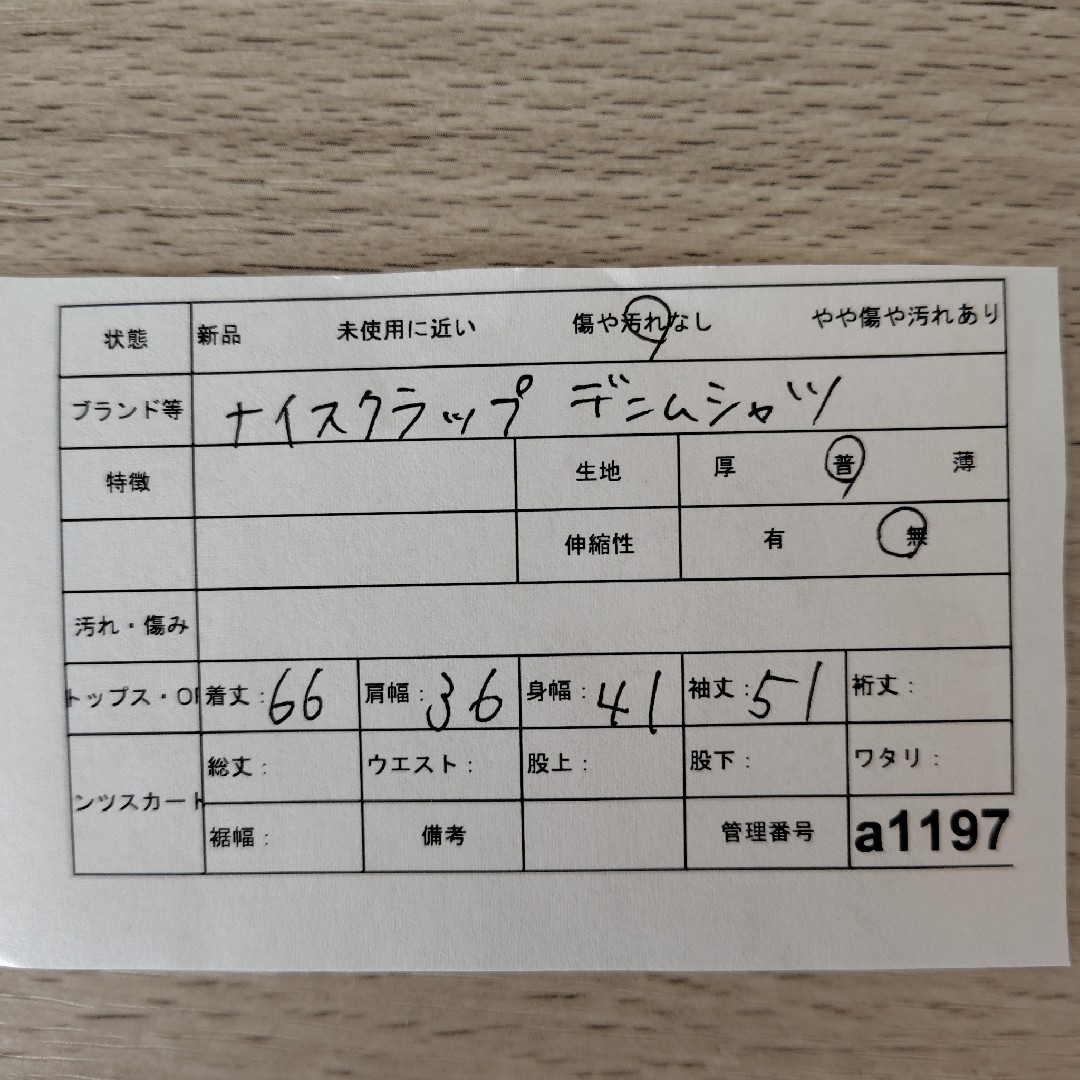 状態 新品 未使用に近い 傷や汚れなし やや傷や汚れあり
ブランド等 ナイスクラップ デニムシャツ
特徴 生地 厚 普 薄
伸縮性 有 無
汚れ・傷み
トップス・OP 着丈:66 肩幅:36 身幅:41 袖丈:51 裄丈:
総丈: ウエスト: 股上: 股下: ワタリ:
ンツスカート
裾幅: 備考 管理番号 a1197